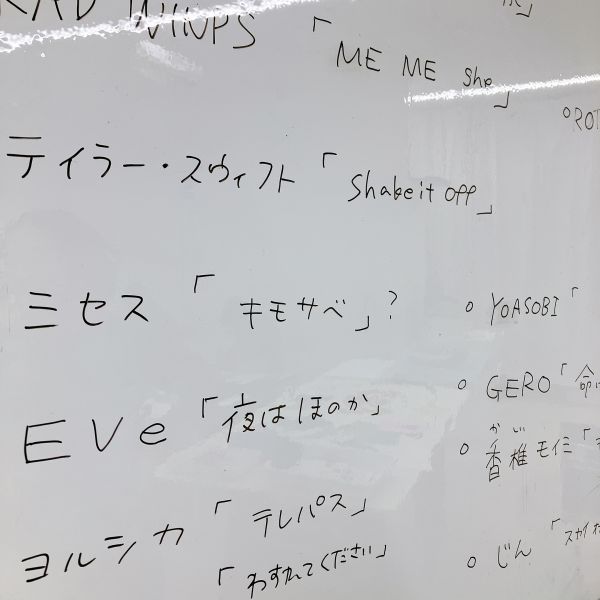 RAD WINPS 「ME ME She」
テイラー・スウィフト「Shake it off」
ミセス「キモサベ」?
EVe「夜はほのか」
ヨルシカ「テレパス」
「わすれてください」
○ROT
○ YOASOBI「
○ GERO「命に
かい
○ 香椎モイミ「
○ じん「スカイ